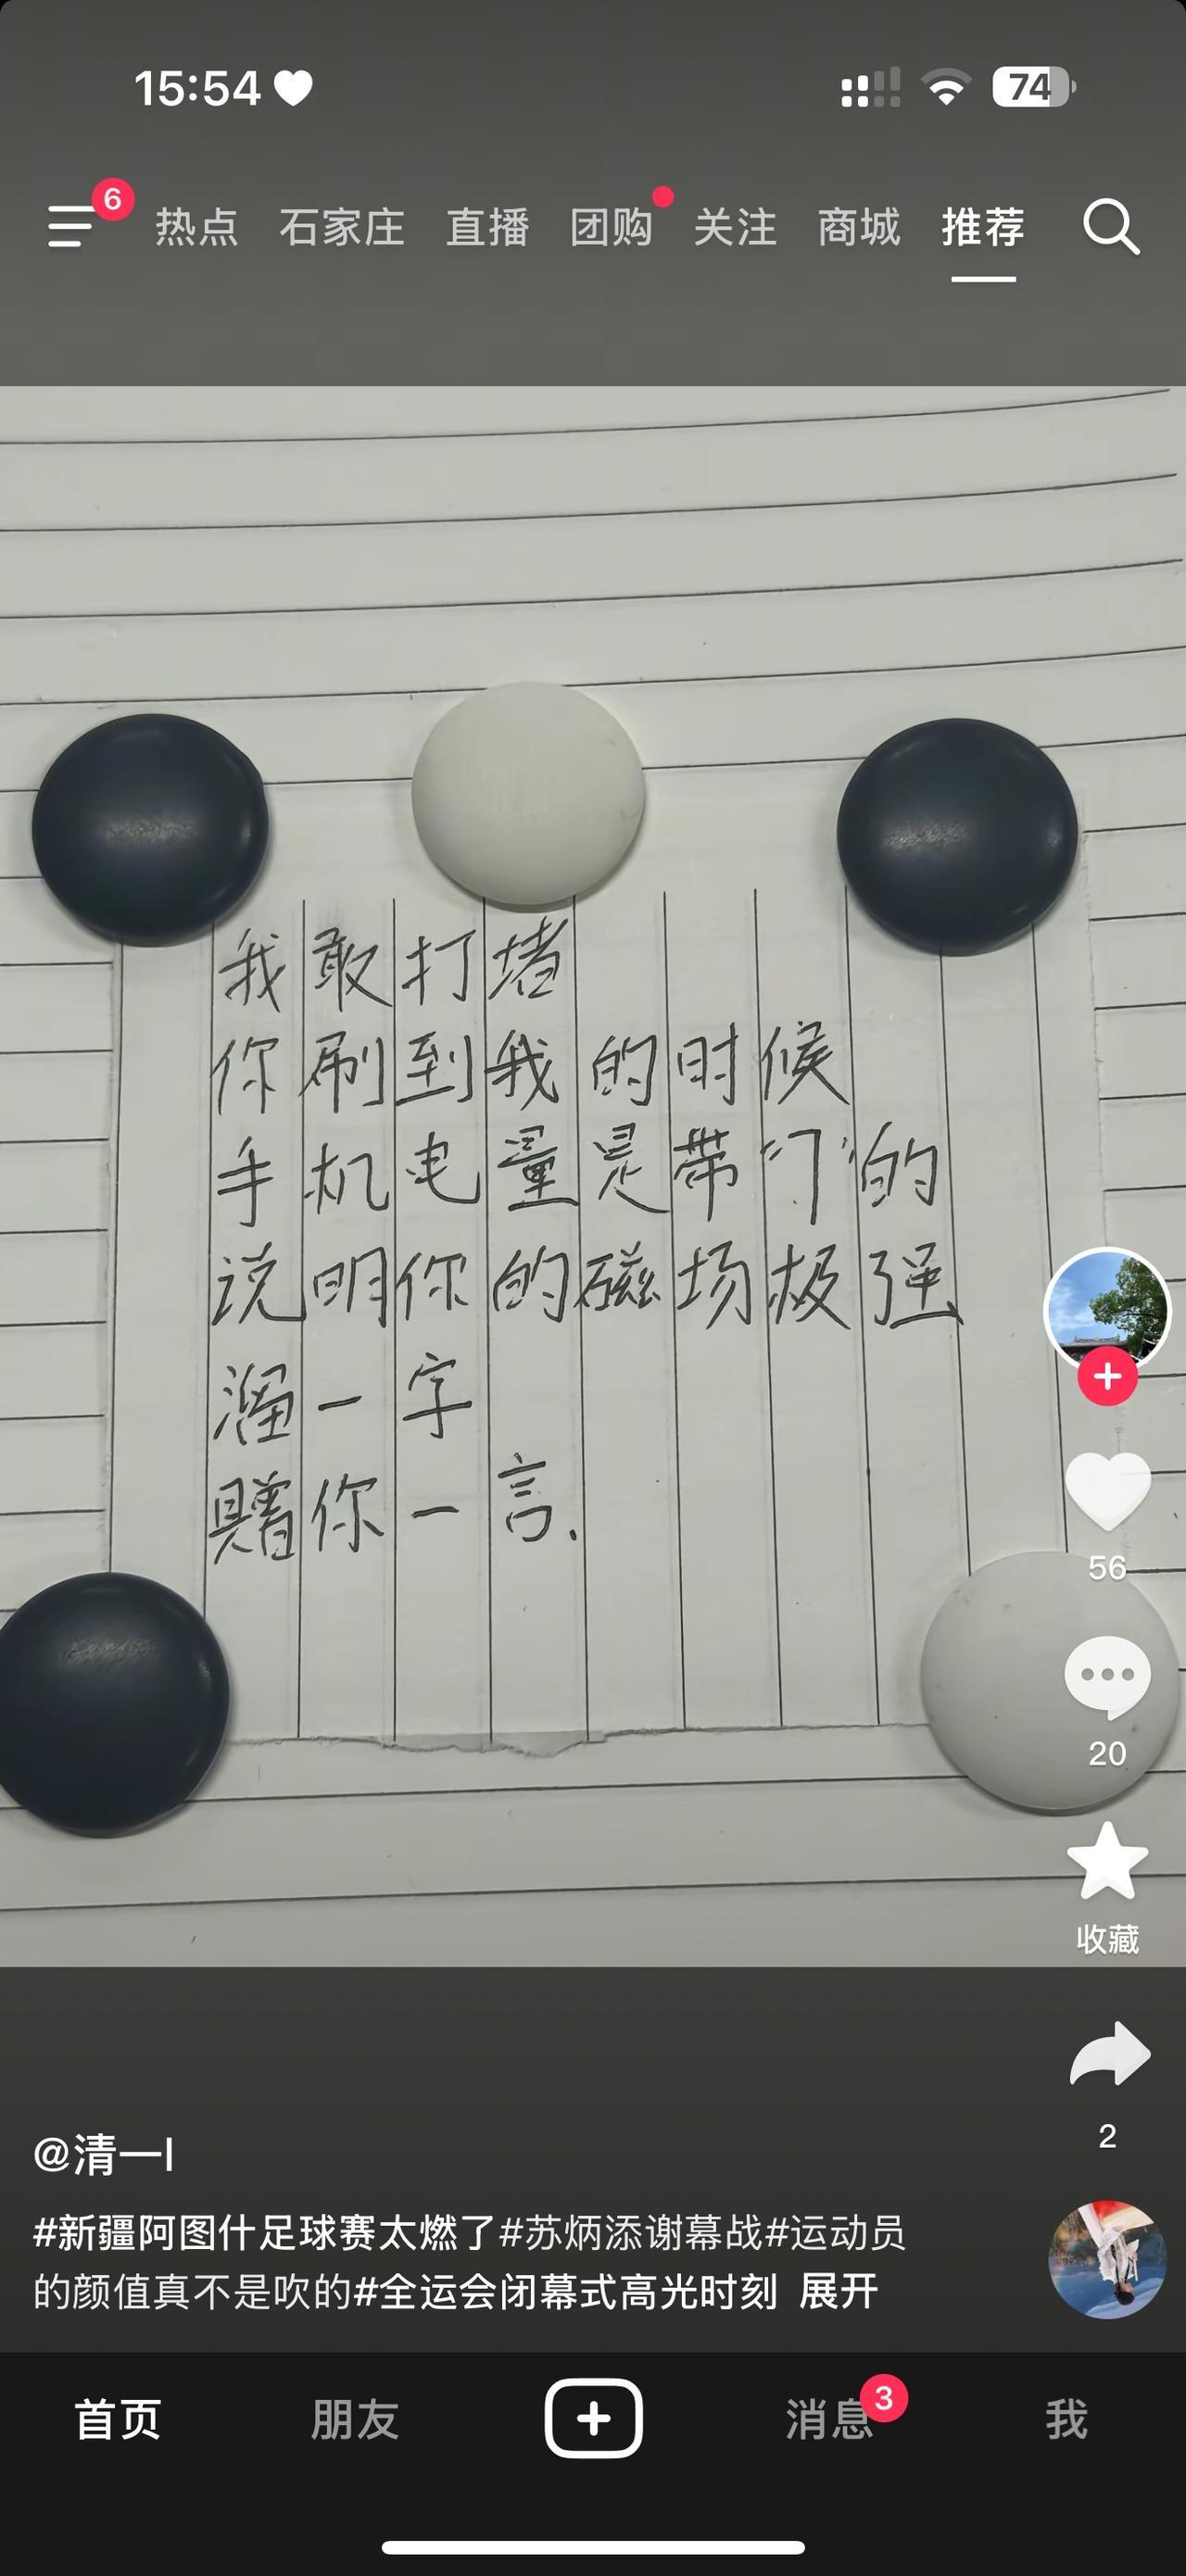 15:54
74
6
热点 石家庄 直播 团购 关注 商城 推荐
我敢打堵
你刷到我的时候
手机电量是带“7”的
说明你的磁场极强
溜一字
赠你一言.
56
20
收藏
2
@清一l
#新疆阿图什足球赛太燃了#苏炳添谢幕战#运动员
的颜值真不是吹的#全运会闭幕式高光时刻 展开
首页 朋友 消息 3 我